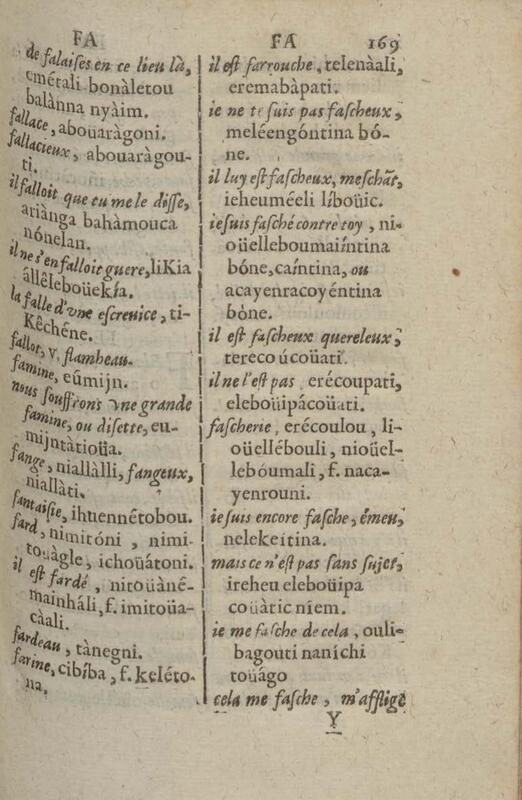 FA
FA
169
de falaiſes en ce lieu là,
cmétali bonàletou
balànna nyàim.
fallace, abouaràgoni.
fallacieux, abouaràgou-
ti.
il falloit que tu me le diſſe,
ariànga bahàmouca
nónelan.
il ne s'en falloit guere, liKia
állêleboüekía.
la falle d'vne eſcreuice, ti-
Kêchéne.
fallot, v. flambeau.
famine, eúmijn.
nous ſouffrons vne grande
famine, ou diſette, eu-
mijntàtioüa.
fange, niallàlli, fangeux,
niallàti.
fantaiſie, ihuennétobou.
fard, nimitóni, nimi-
toüàgle, ichoüátoni.
il eſt fardé, nitoüàné-
mainháli, f. imitoüa-
càali.
fardeau, tànegni.
farine, cibíba, f. keléto-
na,
il eſt farrouche, telenàali,
eremabàpati.
ie ne te ſuis pas faſcheux,
meléengóntina bó-
ne.
il luy eſt faſcheux, meſchãt,
ieheuméeli líboüic.
ie ſuis faſché contre toy, ni-
oüelleboumaíntina
bóne, caíntina, ou
acayenracoyéntina
bòne.
il eſt faſcheux quereleux,
tereco úcoüati.
il ne l'eſt pas, erécoupati,
eleboüipácoüati.
faſcherie, erécoulou, li-
oüellébouli, nioüel-
lebóumali, f. naca-
yenrouni.
ie ſuis encore faſche, émeu,
nelekeítina.
mais ce n'eſt pas ſans ſujet,
ireheu eleboüipa
coüàtic niem.
ie me faſche de cela, ouli-
bagouti naníchi
toüàgo
cela me faſche, m'afflige
Y